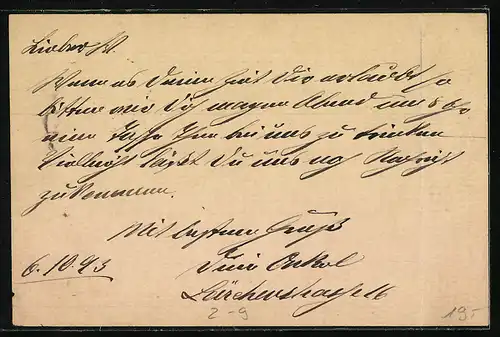 Lieber W.
Wenn es Deine Zeit Dir erlaubt, so
bitten wir Dich morgen Abend um 8 Uhr
eine Tasse Thee bei uns zu trinken
Vielleicht läßt Du uns noch Nachricht
zukommen.
Mit bestem Gruß
6.10.93 Dein Onkel
Lärchenstrasse 16
2-9 19.-